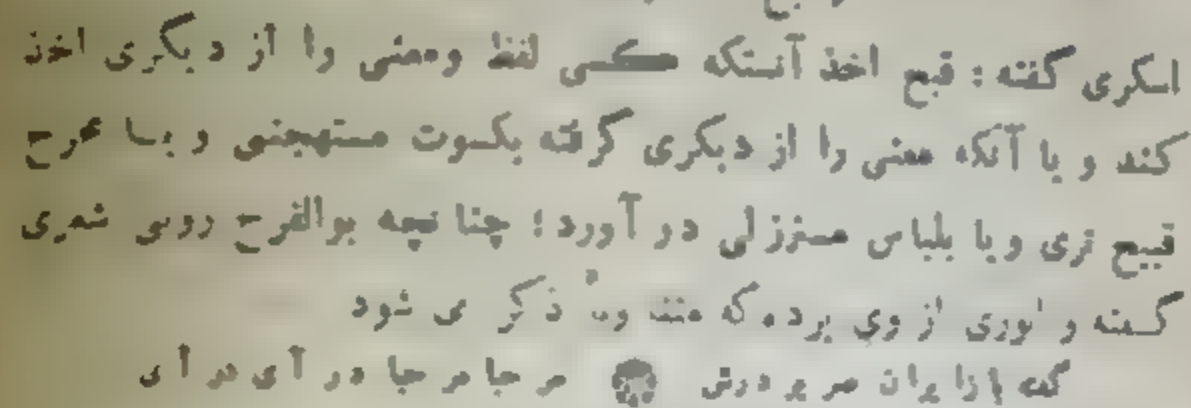 اسکری گفته : قبح اخذ آنستکه کسی لفظ ومعنی را از دیگری اخذ
کند و یا آنکه معنی را از دیگری گرفته بکسوت مستهجنی و بسا
قبیح تری ویا بلباس در آورد ؛ چنانچه بوالفرج رونی شعری
گفته و انوری از وی برده که ذکر می شود
که مرحبا مرحبا در آی در آی